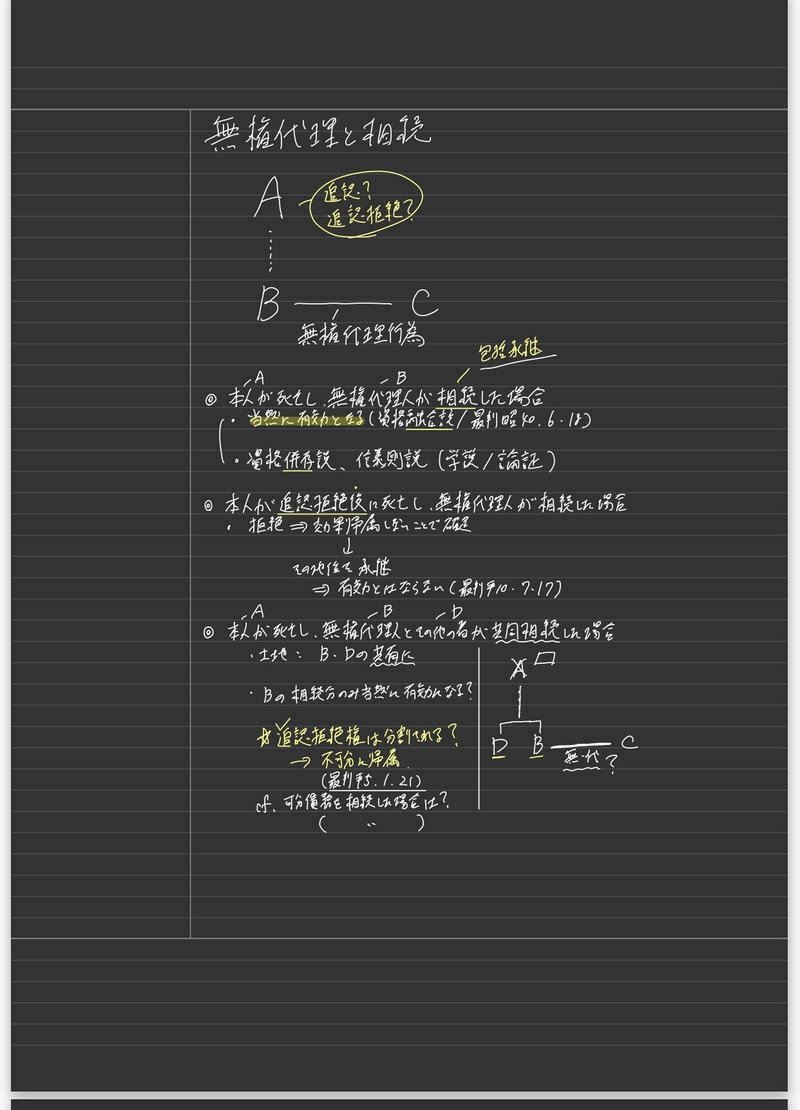 無権代理と相続
A
追認?
追認拒絶?
B
C
無権代理行為
包括承継
A B
◎ 本人が死亡し、無権代理人が相続した場合
・当然に有効となる(資格融合説/最判昭40.6.18)
・資格併存説、信義則説(学説/論証)
◎ 本人が追認拒絶後に死亡し、無権代理人が相続した場合
・拒絶 ⇒ 効果帰属しないことで確定
↓
その地位を承継
⇒ 有効とはならない(最判平10.7.17)
A B D
◎ 本人が死亡し、無権代理人とその他の者が共同相続した場合
・土地: B・Dの共有に
・Bの相続分のみ当然に有効になる?
☆追認拒絶権は分割される?
→ 不可分に帰属
(最判平5.1.21)
cf. 可分債務を相続した場合は?
( 〃 )
A
D B C
無・代?